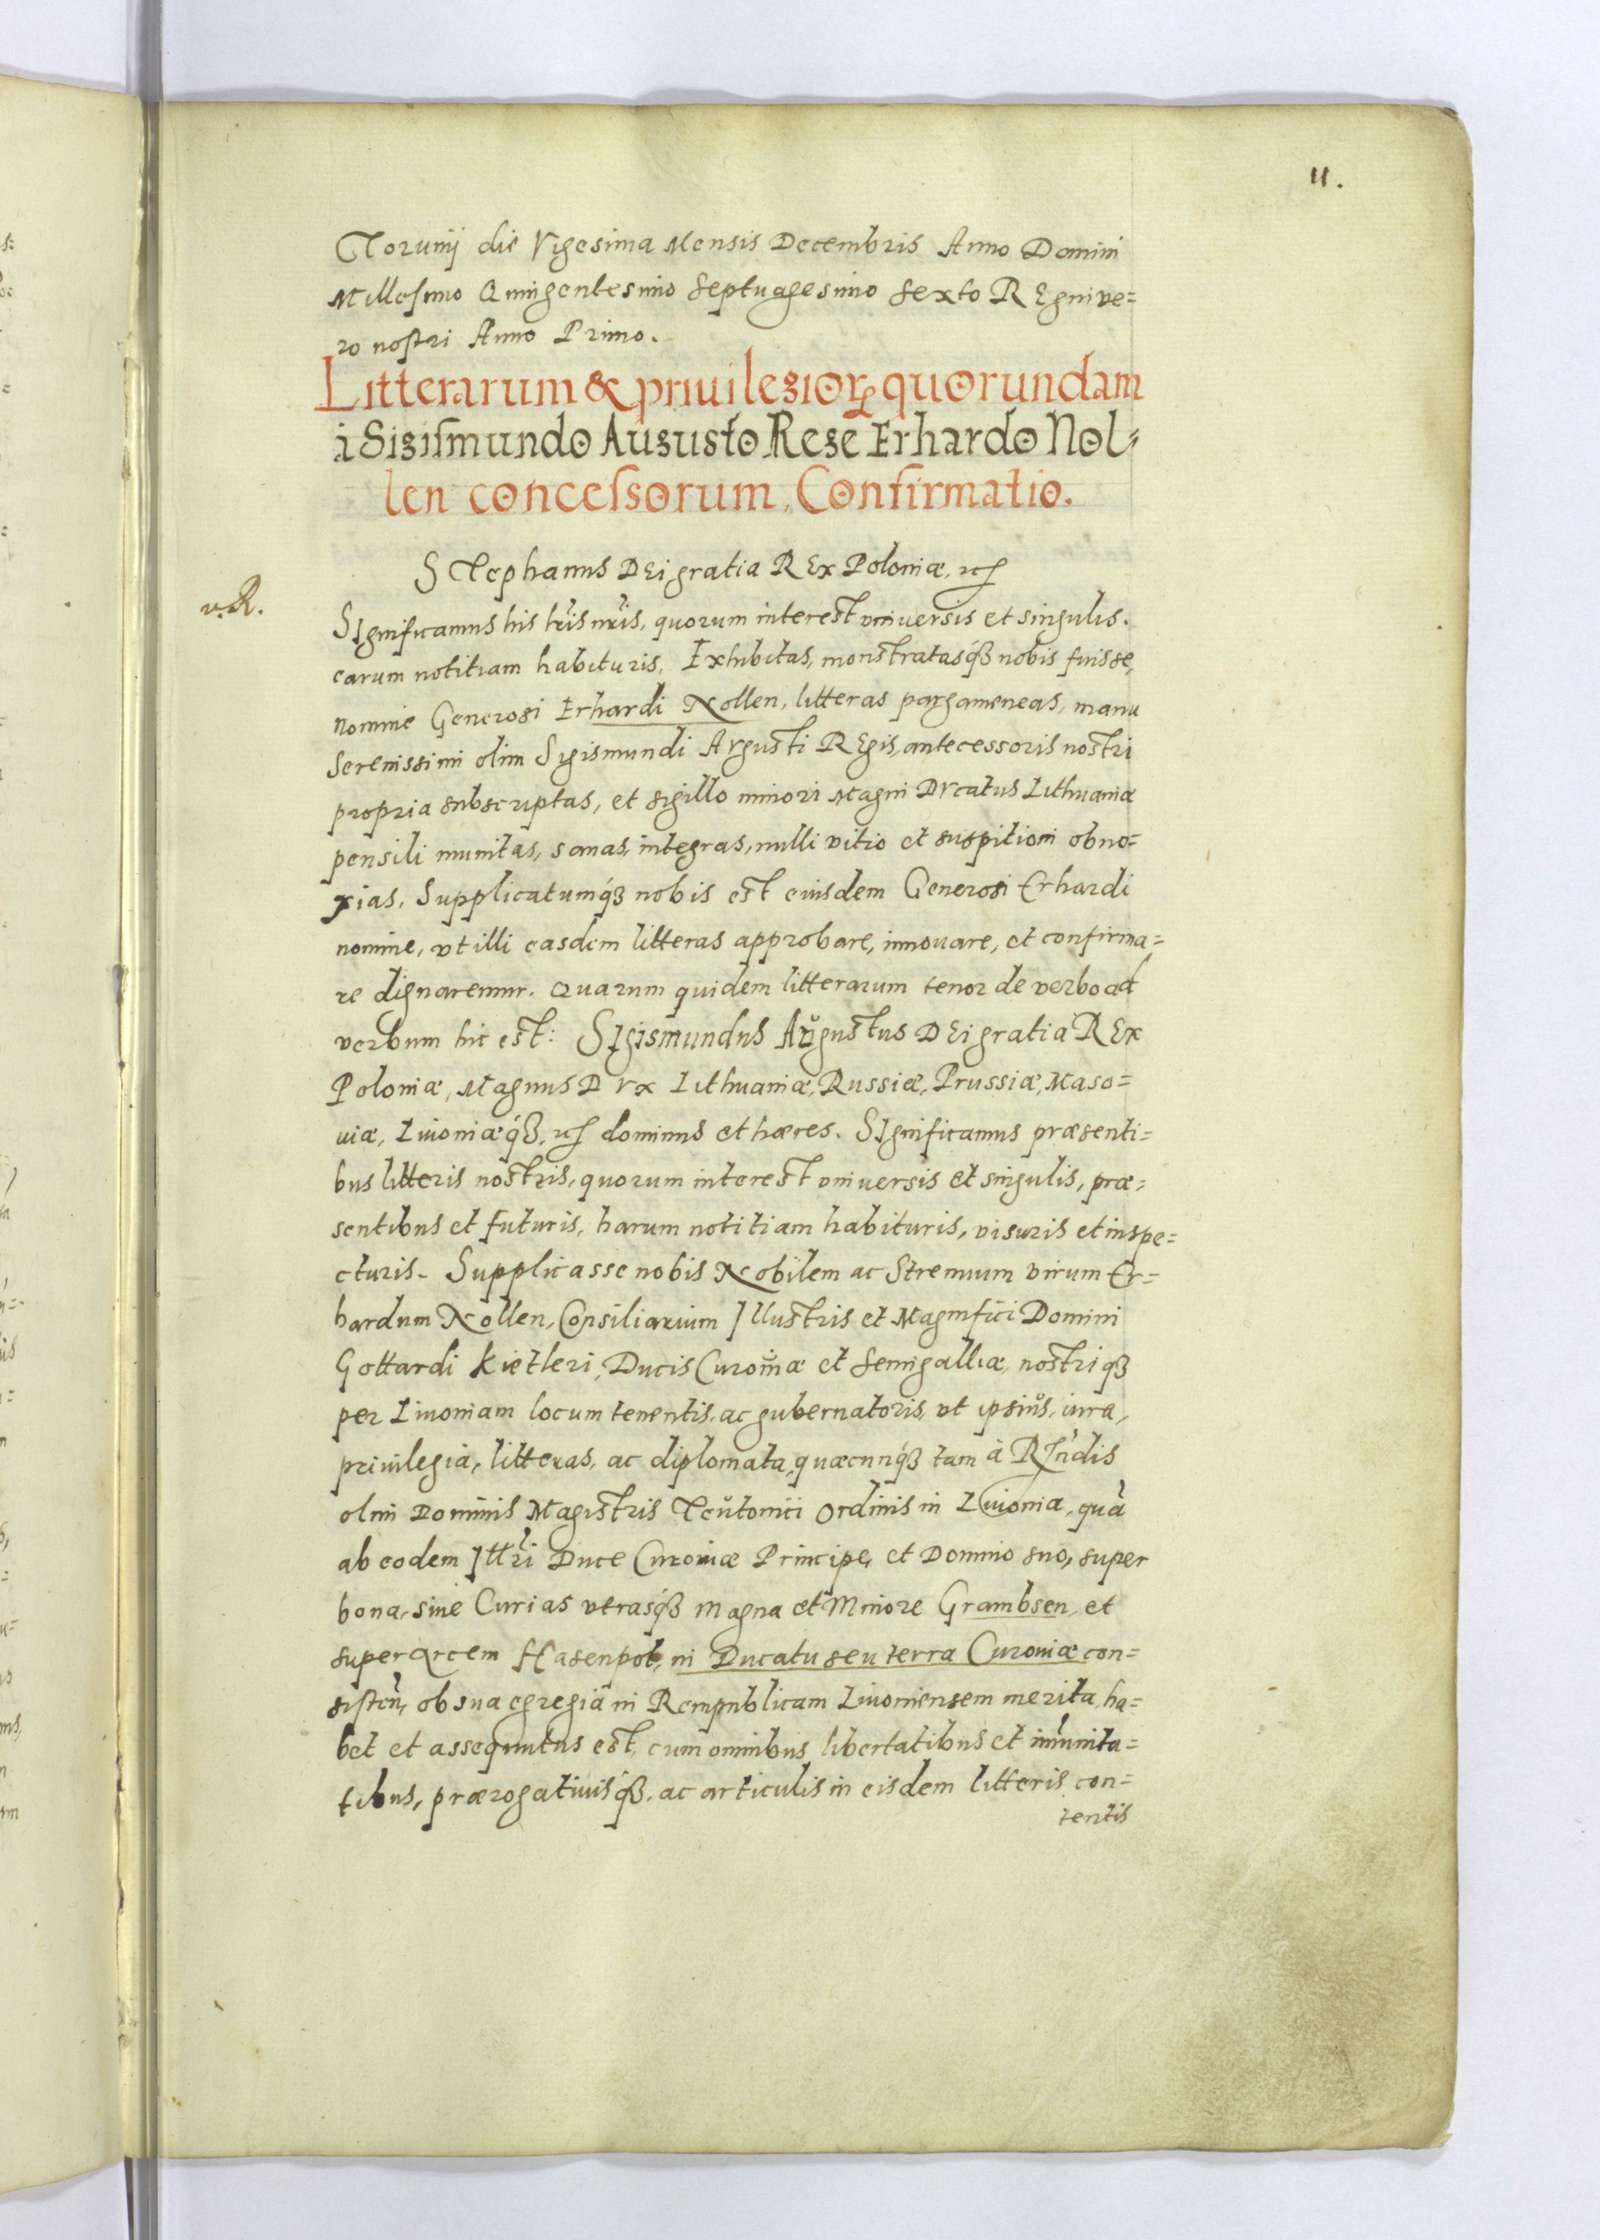 11.
Torunij die Vigesima Mensis Decembris Anno Domini
Millesimo Quingentesimo Septuagesimo Sexto REgni ve=
ro nostri Anno Primo.
Litterarum & priuilegiorꝝ quorundam
à Sigismundo Augusto Rege Erhardo Nol-
len concessorum, Confirmatio.
STephanus DEi gratia REx Poloniæ, etc
SIgnificamus his lr̃is nr̃is, quorum interest vniuersis et singulis.
earum notitiam habituris, Exhibitas, monstratasqꝫ nobis fuisse,
nomine Generosi Erhardi Nollen, litteras pargameneas, manu
Serenissimi olim Sigismundi AVgusti REgis, antecessoris nostri
propria subscriptas, et sigillo minori Magni DVcatus Lithuaniæ
pensili munitas, sanas, integras, nulli vitio et suspitioni obno=
xias, Supplicatumqꝫ nobis est eiusdem Generosi Erhardi
nomine, vt illi easdem litteras approbare, innouare, et confirma=
re dignaremur. Quarum quidem litterarum tenor de verbo ad
verbum hic est: SIgismundus AVgustus DEi gratia REx
Poloniæ, Magnus DVx Lithuaniæ, Russiæ, Prussiæ, Maso=
uiæ, Liuoniæqꝫ, etc dominus et hæres. SIgnificamus præsenti=
bus litteris nostris, quorum interest vniuersis et singulis, præ=
sentibus et futuris, harum notitiam habituris, visuris et inspe=
cturis. Supplicasse nobis Nobilem ac Strenuum virum Er=
hardum Nollen, Consiliarium Illustris et Magnifici Domini
Gottardi Kietleri, Ducis Curoniæ et Semigalliæ, nostriqꝫ
per Liuoniam locum tenentis, ac gubernatoris, vt ipsius, iura,
priuilegia, litteras, ac diplomata, quæcunqꝫ tam à Rñdis
olim Dominis Magistris Teutonici Ordinis in Liuonia, quà
ab eodem Ill̃ri Duce Curoniæ Principe, et Domino suo, super
bona, siue Curias vtrasqꝫ Magna et Minore Grambsen, et
super arcem Hasenpot, in Ducatu seu terra Curoniæ con=
sisteñ, ob sua egregia in Rempublicam Liuoniensem merita, ha=
bet et assequutus est, cum omnibus libertatibus et immunita=
tibus, prærogatiuisqꝫ, ac articulis in eisdem litteris con=
tentis